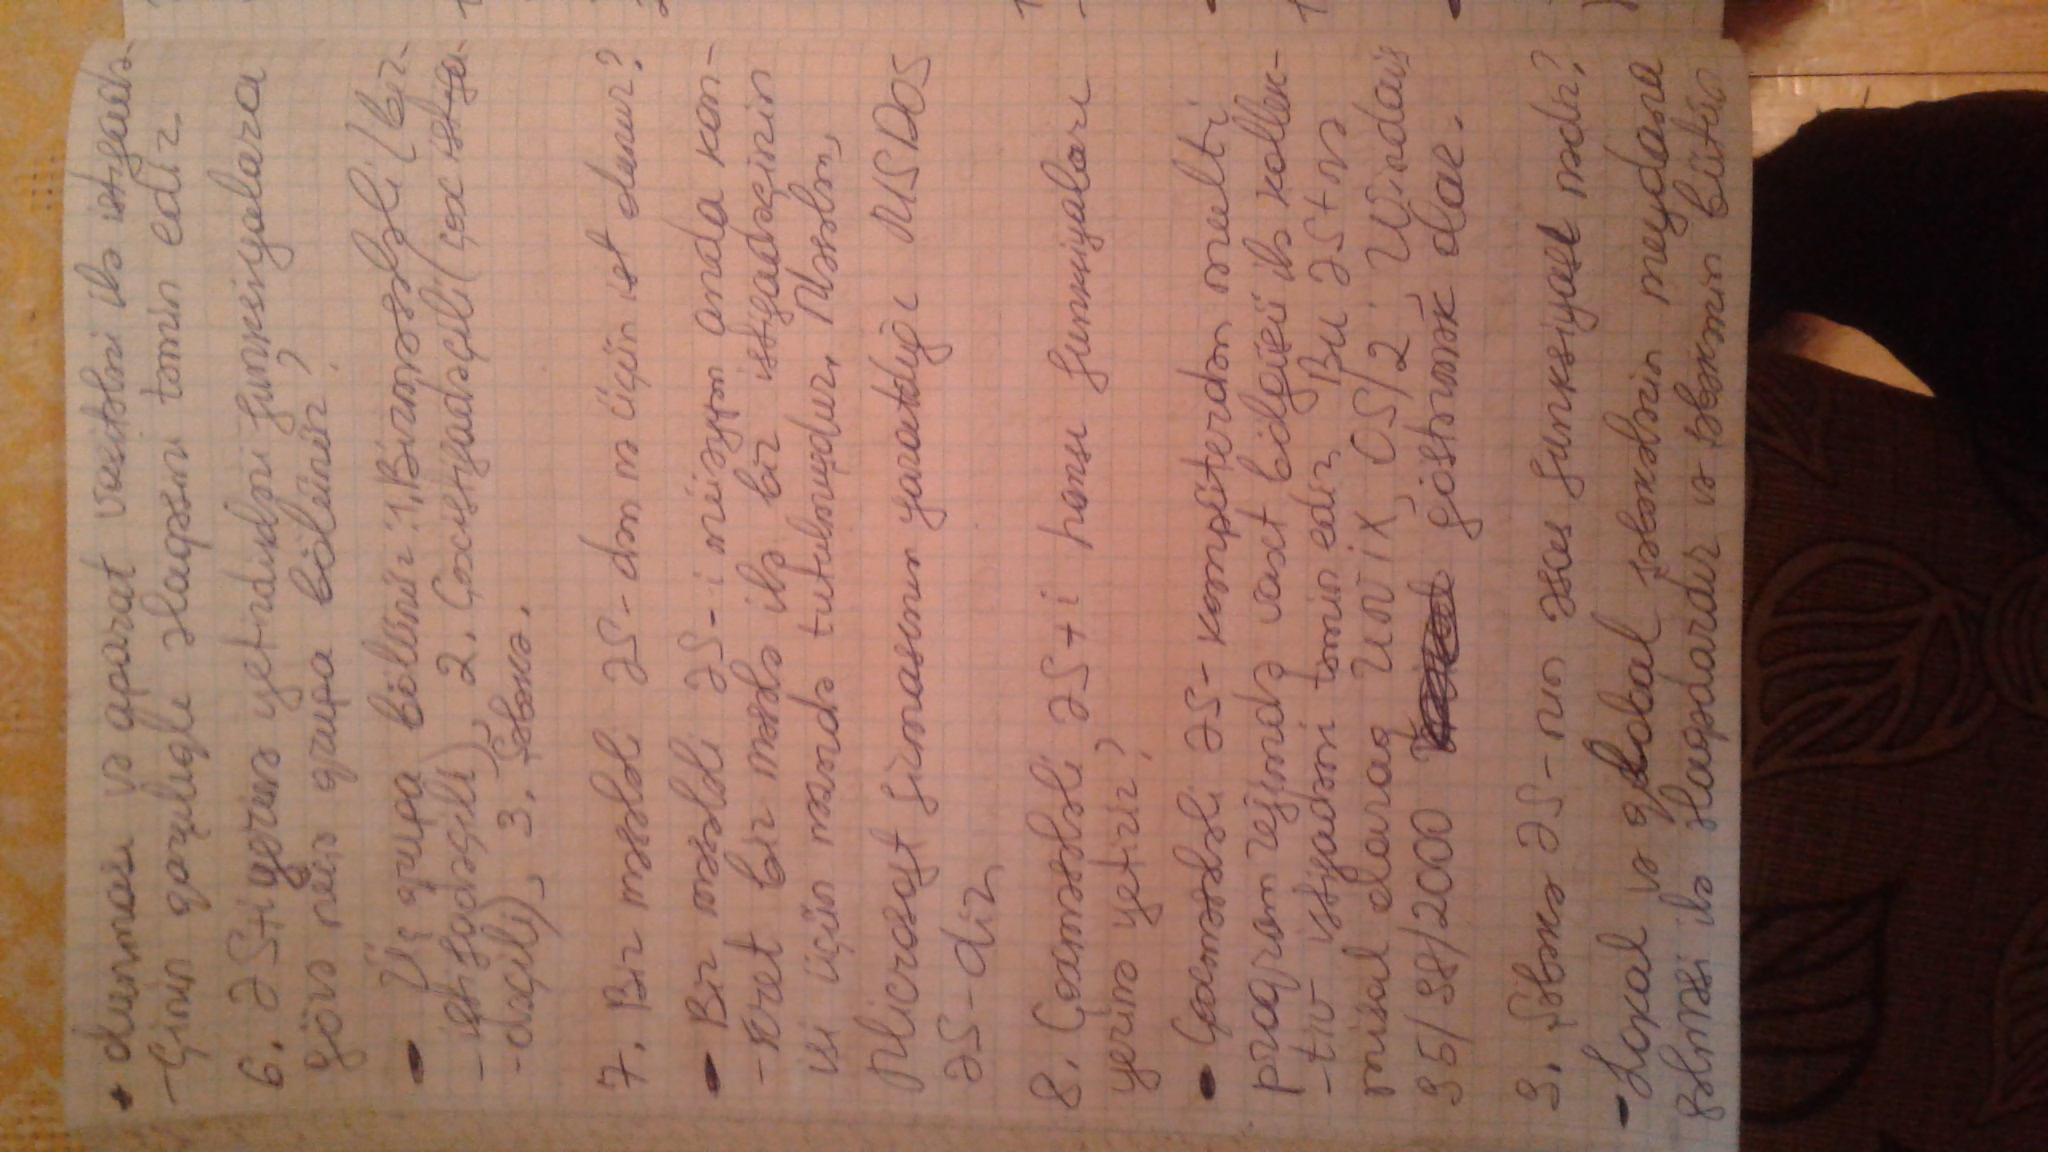 dunması və aparat vasitələri ilə istifadə-
-çinin qarşılıqlı əlaqəsini təmin edir.
6. ƏS+i yerinə yetirdikləri funksiyalara
görə neçə qrupa bölünür?
- Üç qrupa bölünür: 1. Birməsələli (bir-
- istifadəçili), 2. Çoxistifadəçili (çox istifa-
-dəçili), 3. Şəbəkə.
7. Bir məsələli ƏS-dən nə üçün ist olunur?
- Bir məsələli ƏS-i müəyyən anda kon-
-kret bir məsələ ilə bir istifadəçinin
işi üçün nəzərdə tutulmuşdur. Məsələn,
Microsoft firmasının yaratdığı MSDOS
ƏS-dir,
8. Çoxməsələli ƏS+i hansı funksiyaları
yerinə yetirir?
- Çoxməsələli ƏS- kompüterdən multi
proqram rejimdə vaxt bölgüsü ilə kollek-
-tiv istifadəni təmin edir Bu ƏS+nə
misal olaraq UNİX, OS/2; Windows
95/98/2000 göstərmək olar.
9. Şəbəkə ƏS-nın əsas funksiyası nədir?
- Lokal və qlobal şəbəkələrin meydana
gəlməsi ilə əlaqədardır və şəbəkənin bütün